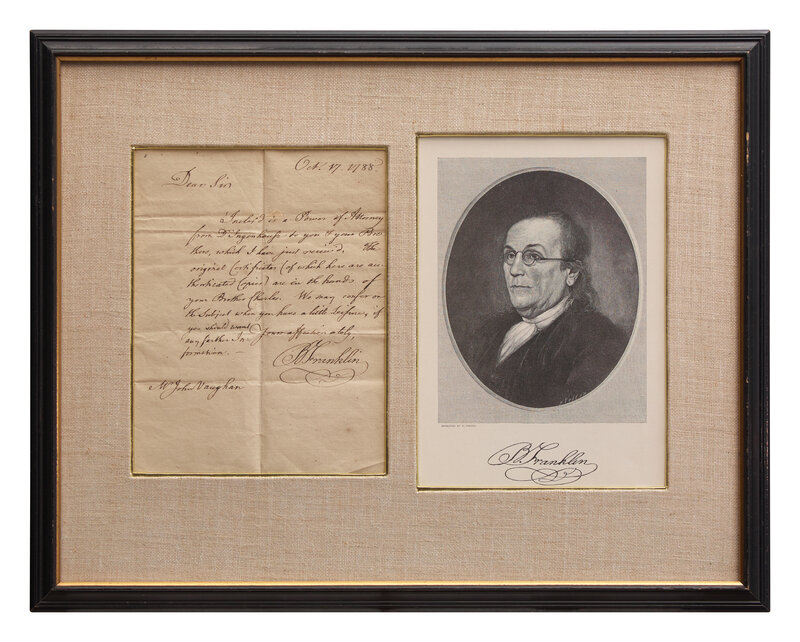 Oct. 17. 1788
Dear Sir,
Inclos'd is a Power of Attorney
from D. Ingenhausz to you & your Bro
ther, which I have just receiv'd. The
original Certificates (of which here are au
thenticated Copies) are in the hands of
your Brother Charles. We may confer on
the Subject when you have a little Leisure, if
you should want
any farther In
formation. —
Yours affectionately,
B Franklin
Mr John Vaughan
ENGRAVED BY
B Franklin